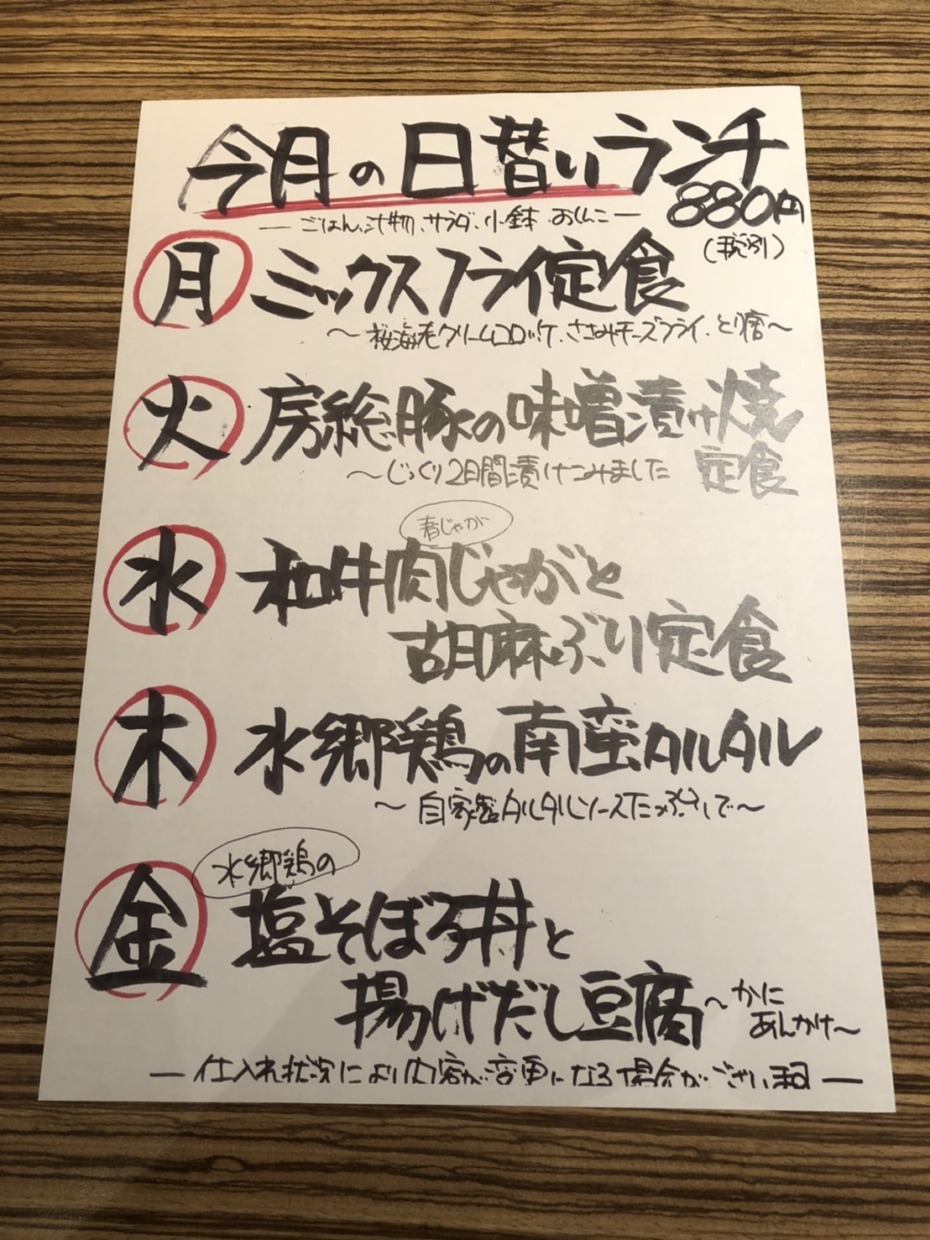 今月の日替りランチ
880円
(税別)
― ごはん、汁物、サラダ、小鉢、おしんこ ―
月 ミックスフライ定食
～桜海老クリームコロッケ、ささみチーズフライ、とり唐～
火 房総豚の味噌漬け焼
定食
～じっくり2日間漬けこみました
春じゃが
水 和牛肉じゃがと
胡麻ぶり定食
木 水郷鶏の南蛮タルタル
～自家製タルタルソースたっぷりで～
水郷鶏の
金 塩そぼろ丼と
揚げだし豆腐
～かに
あんかけ～
― 仕入れ状況により内容が変更になる場合がございます ―